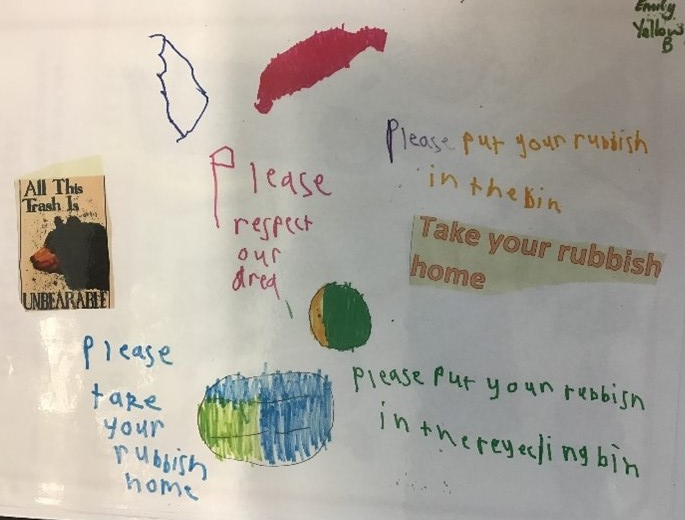 Emily
Yellow
B
Please put your rubbish
in the bin
Please
respect
our
area
All This
Trash Is
UNBEARABLE
Take your rubbish
home
Please
take
your
rubbish
home
Please put your rubbish
in the recycling bin